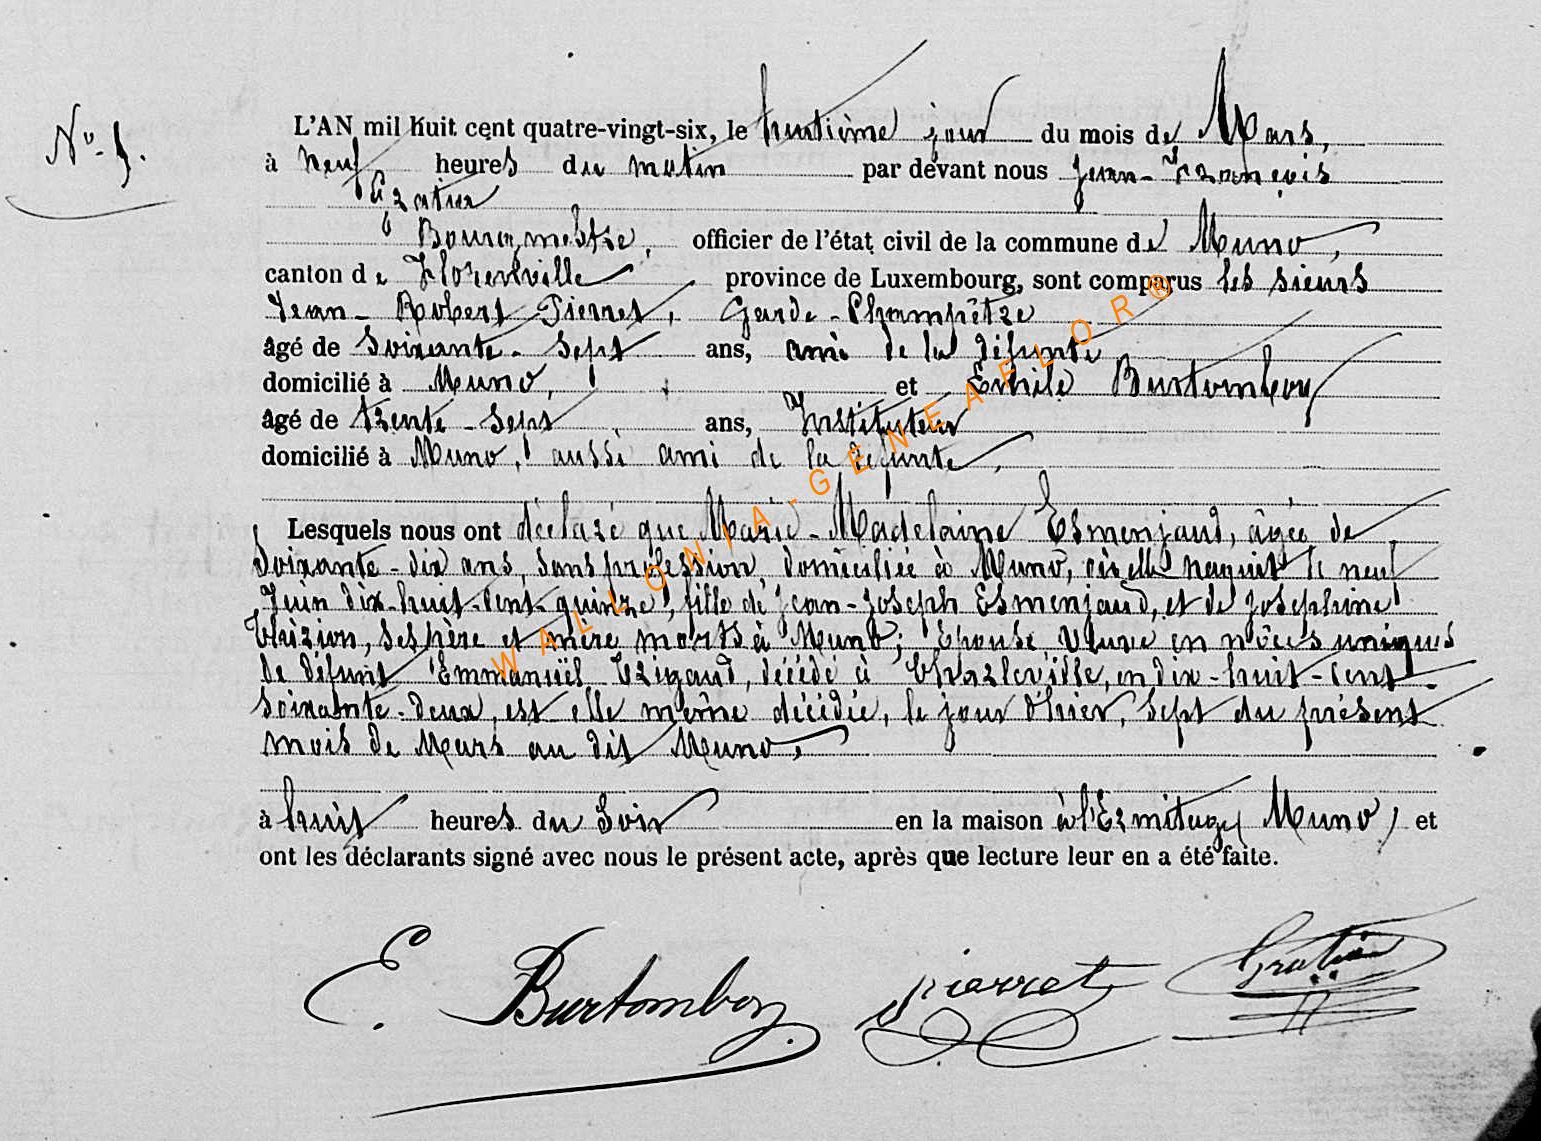 No. 5.
L'AN mil huit cent quatre-vingt-six, le huitième jour du mois de Mars,
à neuf heures du matin par devant nous Jean-François
Gratia
Bourgmestre, officier de l'état civil de la commune de Muno,
canton de Florenville province de Luxembourg, sont comparus les sieurs
Jean-Robert Pierret, Garde-Champêtre
âgé de Soixante-Sept ans, ami de la défunte
domicilié à Muno, et Emile Burtomboy
âgé de trente-Sept ans, Instituteur
domicilié à Muno, aussi ami de la défunte,
Lesquels nous ont déclaré que Marie-Madelaine Esmenjaud, âgée de
Soixante-dix ans, sans profession, domiciliée à Muno, où elle naquit le neuf
Juin dix-huit-cent-quinze, fille de Jean-Joseph Esmenjaud, et de Joséphine
ses père et mère morts à Muno; Epouse Veuve en nôces uniques
de défunt Emmanuël Trigaud, décédé à Charleville, en dix-huit-cent-
soixante-deux, est elle même décédée, le jour d'hier, sept du présent
mois de Mars au dit Muno,
à huit heures du Soir en la maison à l'Ermitage Muno, et
ont les déclarants signé avec nous le présent acte, après que lecture leur en a été faite.
E. Burtomboy Pierret Gratia
WALLONIA-GENEAFLOR®